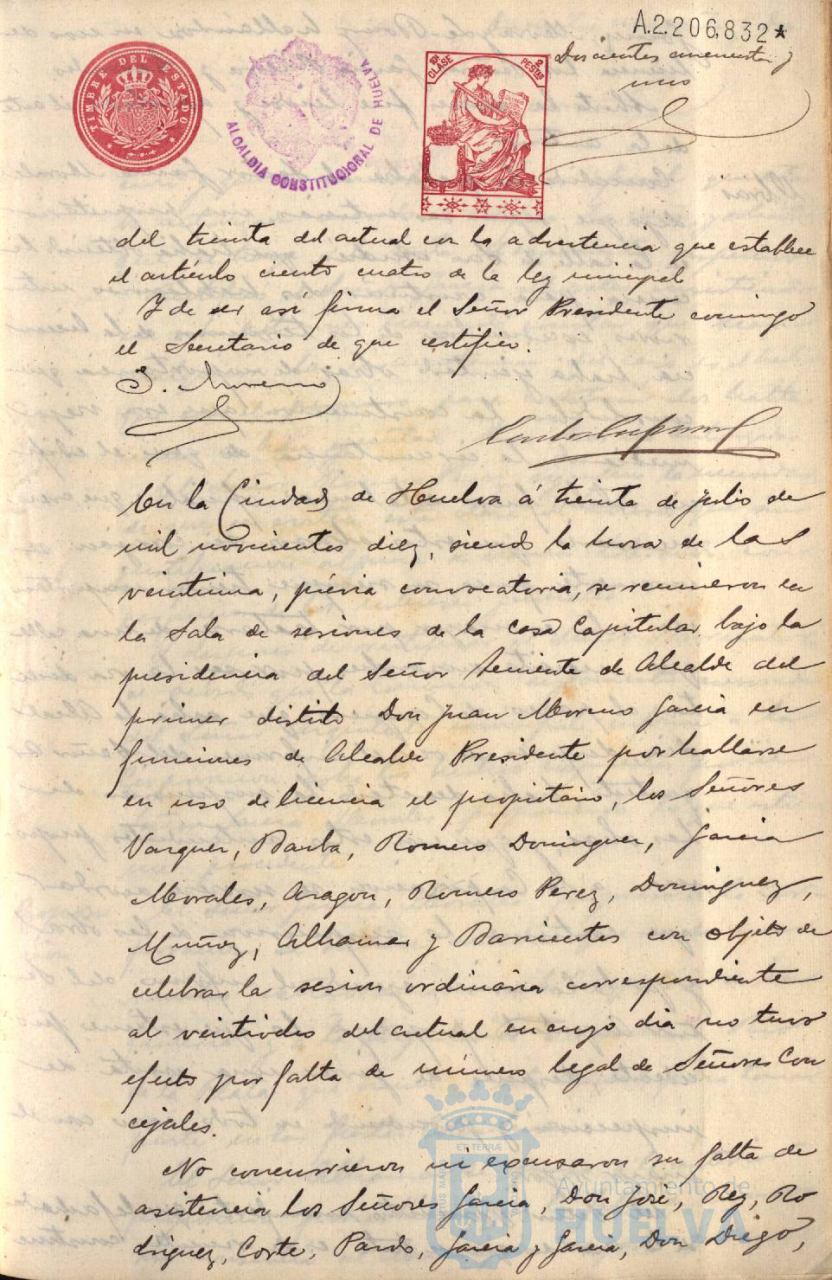 A.2.206,832*
Doscientos cincuenta y
uno
TIMBRE DEL ESTADO
ALCALDIA CONSTITUCIONAL DE HUELVA
CLASE 2 PESETAS
del treinta del actual con la advertencia que establece
el artículo ciento cuatro de la ley municipal
Y de ser así firma el Señor Presidente conmigo
el Secretario de que certifico.
J. Moreno
En la Ciudad de Huelva á treinta de julio de
mil novecientos diez, siendo la hora de las
veintiuna, prévia convocatoria, se reunieron en
la Sala de sesiones de la casa Capitular bajo la
presidencia del Señor Teniente de Alcalde del
primer distrito Don Juan Moreno Garcia en
funciones de Alcalde Presidente por hallarse
en uso de licencia el propietario, los Señores
Vazquez, Barba, Romero Dominguez, Garcia
Morales, Aragon, Romero Perez, Dominguez,
Muñoz, Alhamar y Barrientos con objeto de
celebrar la sesion ordinaria correspondiente
al veintiocho del actual en cuyo dia no tuvo
efecto por falta de número legal de Señores Con
cejales.
No concurrieron ni excusaron su falta de
asistencia los Señores Garcia, Don José, Rey, Ro
driguez, Corte, Pardo, Garcia y Garcia, Don Diego,
Ayuntamiento de
HUELVA